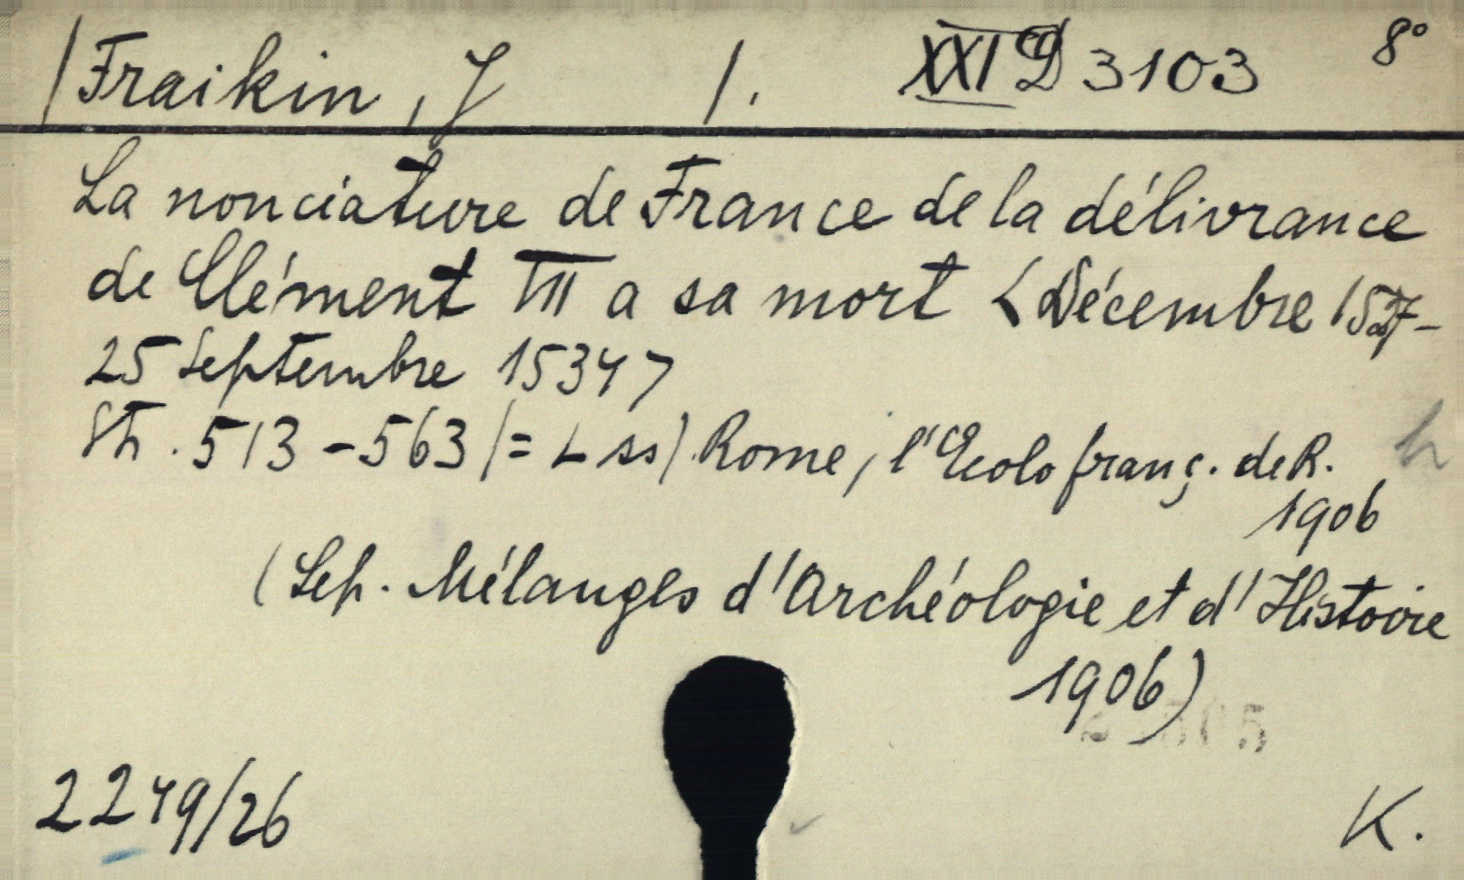 /Fraikin, J /. XXI D 3103 8°
La nonciature de France de la délivrance
de Clément VII a sa mort <Décembre 1527-
25 Septembre 1534>
Str. 513-563 (= L ss) Rome, l'Ecole franç. de R.
1906
(Sep. Mélanges d'Archéologie et d'Histoire
1906)
2249/26 K.